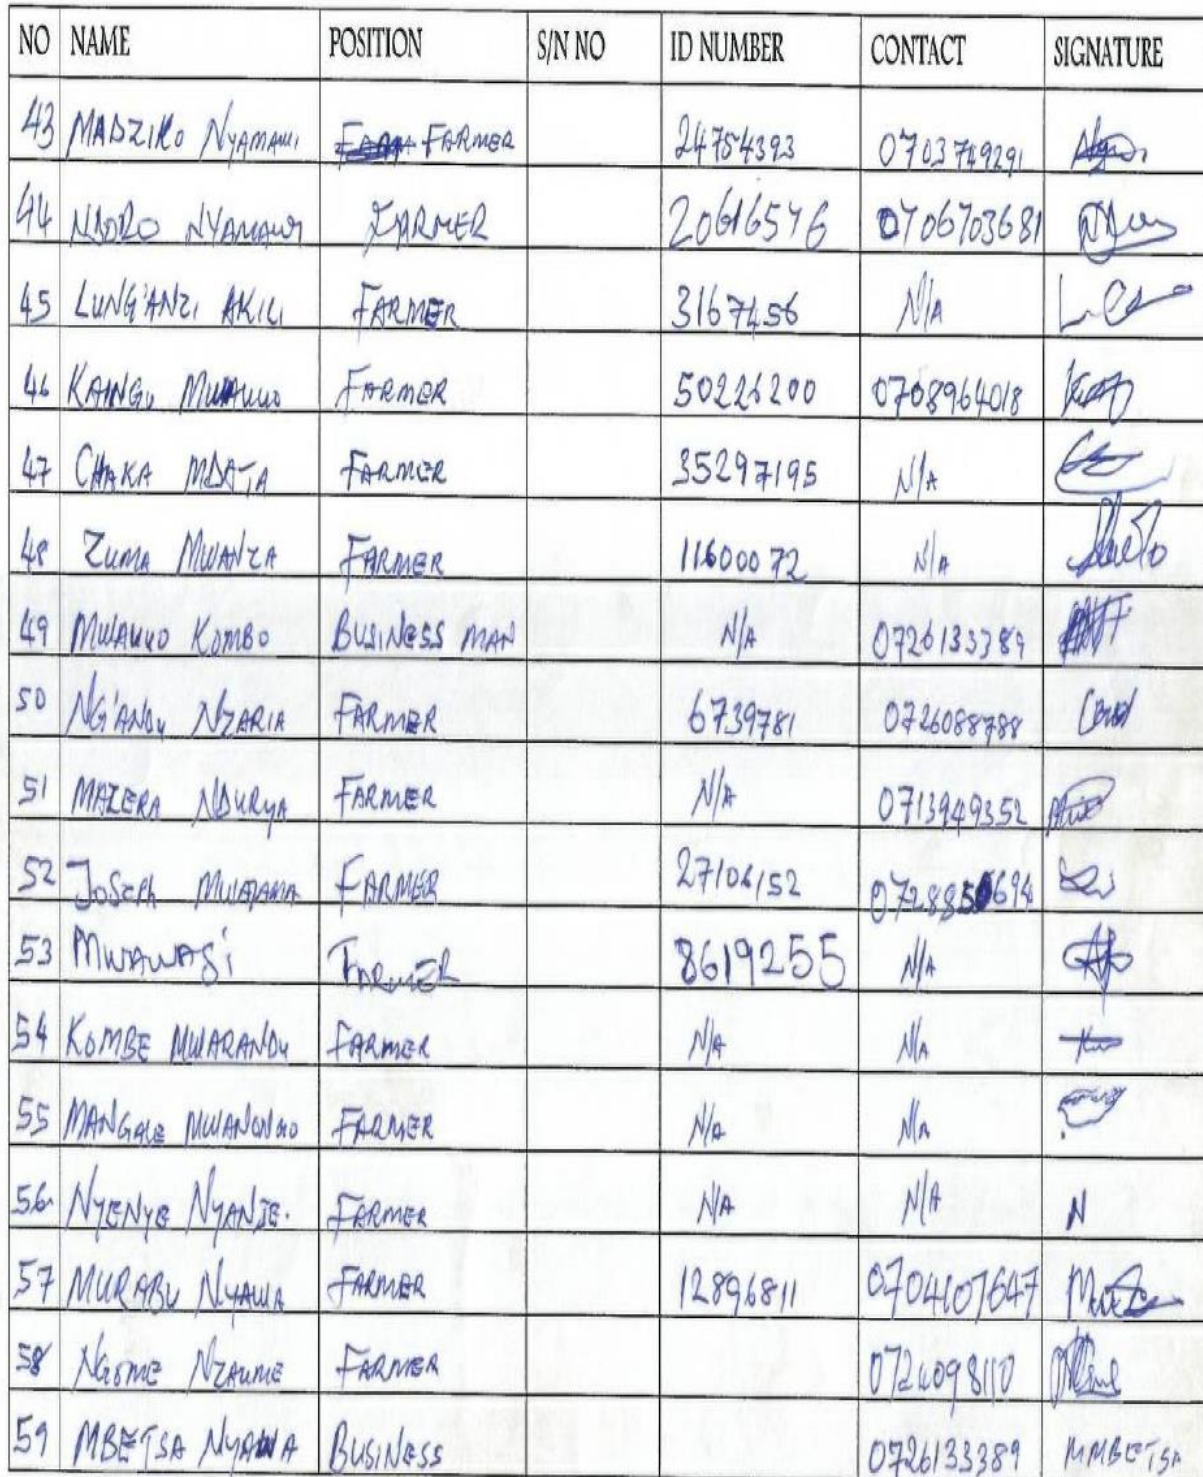 NO NAME POSITION S/N NO ID NUMBER CONTACT SIGNATURE
43 MADZIKO NYAMAWI FARMER 24754393 0703749291
44 NDORO NYAMAWI FARMER 20616576 0706703681
45 LUNG'ANZI AKILI FARMER 3167456 N/A
46 KAINGU MWAUUO FARMER 50226200 0708964018
47 CHAKA MDATA FARMER 35297195 N/A
48 ZUMA MWANZA FARMER 11600072 N/A
49 MWAUUO KOMBO BUSINESS MAN N/A 0726133389
50 NG'ANDU NZARIA FARMER 6739781 0726088788
51 MAZERA NDURYA FARMER N/A 0713949352
52 JOSEPH FARMER 27106152
53 MWAWASI FARMER 8619255 N/A
54 KOMBE MWARANDU FARMER N/A N/A
55 MANGALE FARMER N/A N/A
56 NYENYE NYANJE. FARMER N/A N/A N
57 MURABU NYAWA FARMER 12896811 0704107647
58 NGOME NZAUME FARMER 0724098110
59 MBETSA NYAWA BUSINESS 0726133389 MMBETSA